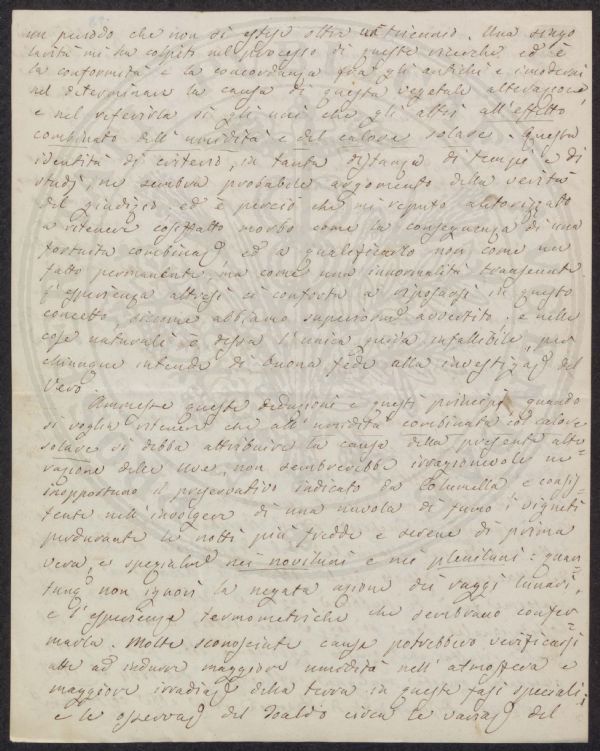 un periodo che non si estese oltre un triennio. Una singo
larità mi ha colpito nel processo di queste ricerche ed è
la conformità e la concordanza fra gli antichi e i moderni
nel determinare la causa di questa vegetale alterazione,
e nel riferirla sì gli uni che gli altri all'effetto
combinato dell'umidità e del calore solare. Questa
identità di criterio, in tanta distanza di tempi e di
studj, mi sembra probabile argomento della verità
del giudizio. ed è perciò che mi reputo autorizzato
a ritenere cosiffatto morbo come la conseguenza di una
fortuita combinaz, ed a qualificarlo non come un
fatto permanente, ma come una innormalità transeunte.
L'esperienza altresì ci conforta a riposarsi in questo
concetto, siccome abbiamo superiorme avvertito. e nelle
cose naturali è dessa l'unica guida infallibile, per
chiunque intende di buona fede alla investigaz del
vero.
Ammesse queste deduzioni e questi principj, quando
si voglia ritenere che all'umidità combinata col calore
solare si debba attribuire la causa della presente alte
razione delle uve, non sembrerebbe irragionevole nè
inopportuno il preservativo indicato da Columella e consis
tente nell'involgere di una nuvola di fumo i vigneti
perdurante le notti più fredde e serene di prima
vera, e specialme nei noviluni e nei pleniluni: quan
tunq non ignori la negata azione dei raggi lunari,
e l'esperienze termometriche che sembrano confer
marla. Molte sconosciute cause potrebbero verificarsi
atte ad indurre maggiore umidità nell'atmosfera e
maggiore irradiaz della terra in queste fasi speciali:
e le osservaz del Toaldo circa le variaz del